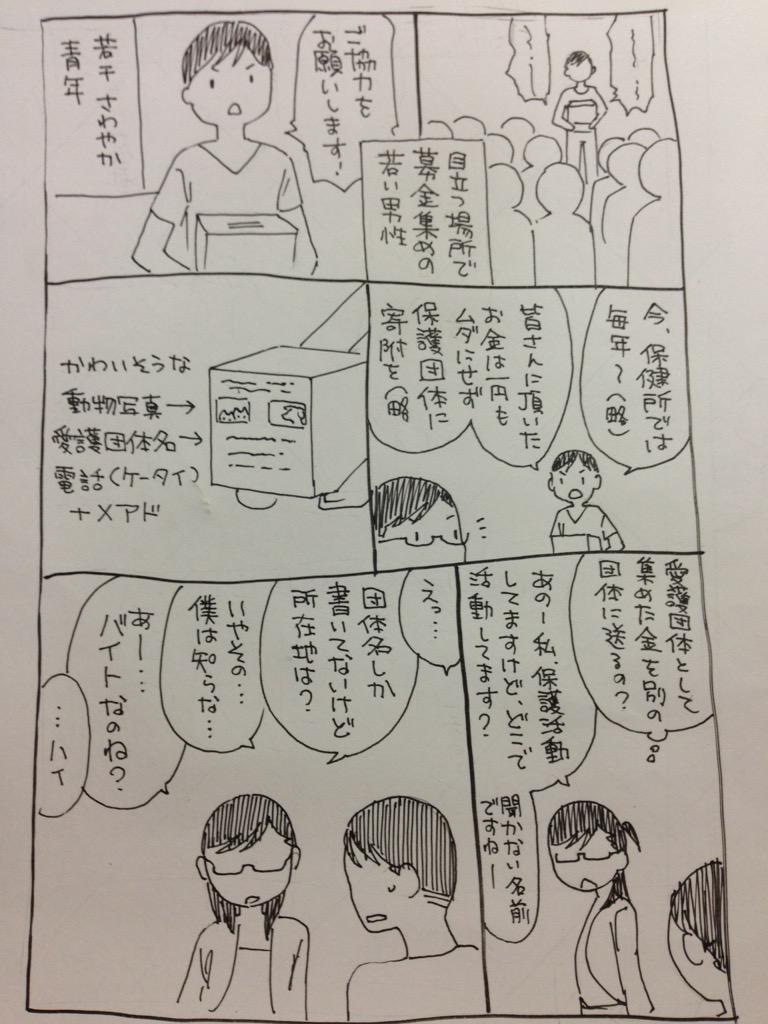 目立つ場所で
募金集めの
若い男性
ご協力を
お願いします!
若干さわやか
青年
今、保健所では
毎年〜(略)
皆さんに頂いた
お金は一円も
ムダにせず
保護団体に
寄附を(略
かわいそうな
動物写真→
愛護団体名→
電話(ケータイ)
+メアド
愛護団体として
集めた金を別の
団体に送るの?
あのー私、保護活動
してますけど、どこで
活動してます?
聞かない名前
ですねー
えっ…
団体名しか
書いてないけど
所在地は?
いやその…
僕は知らな…
あー…
バイトなのね?
…ハイ